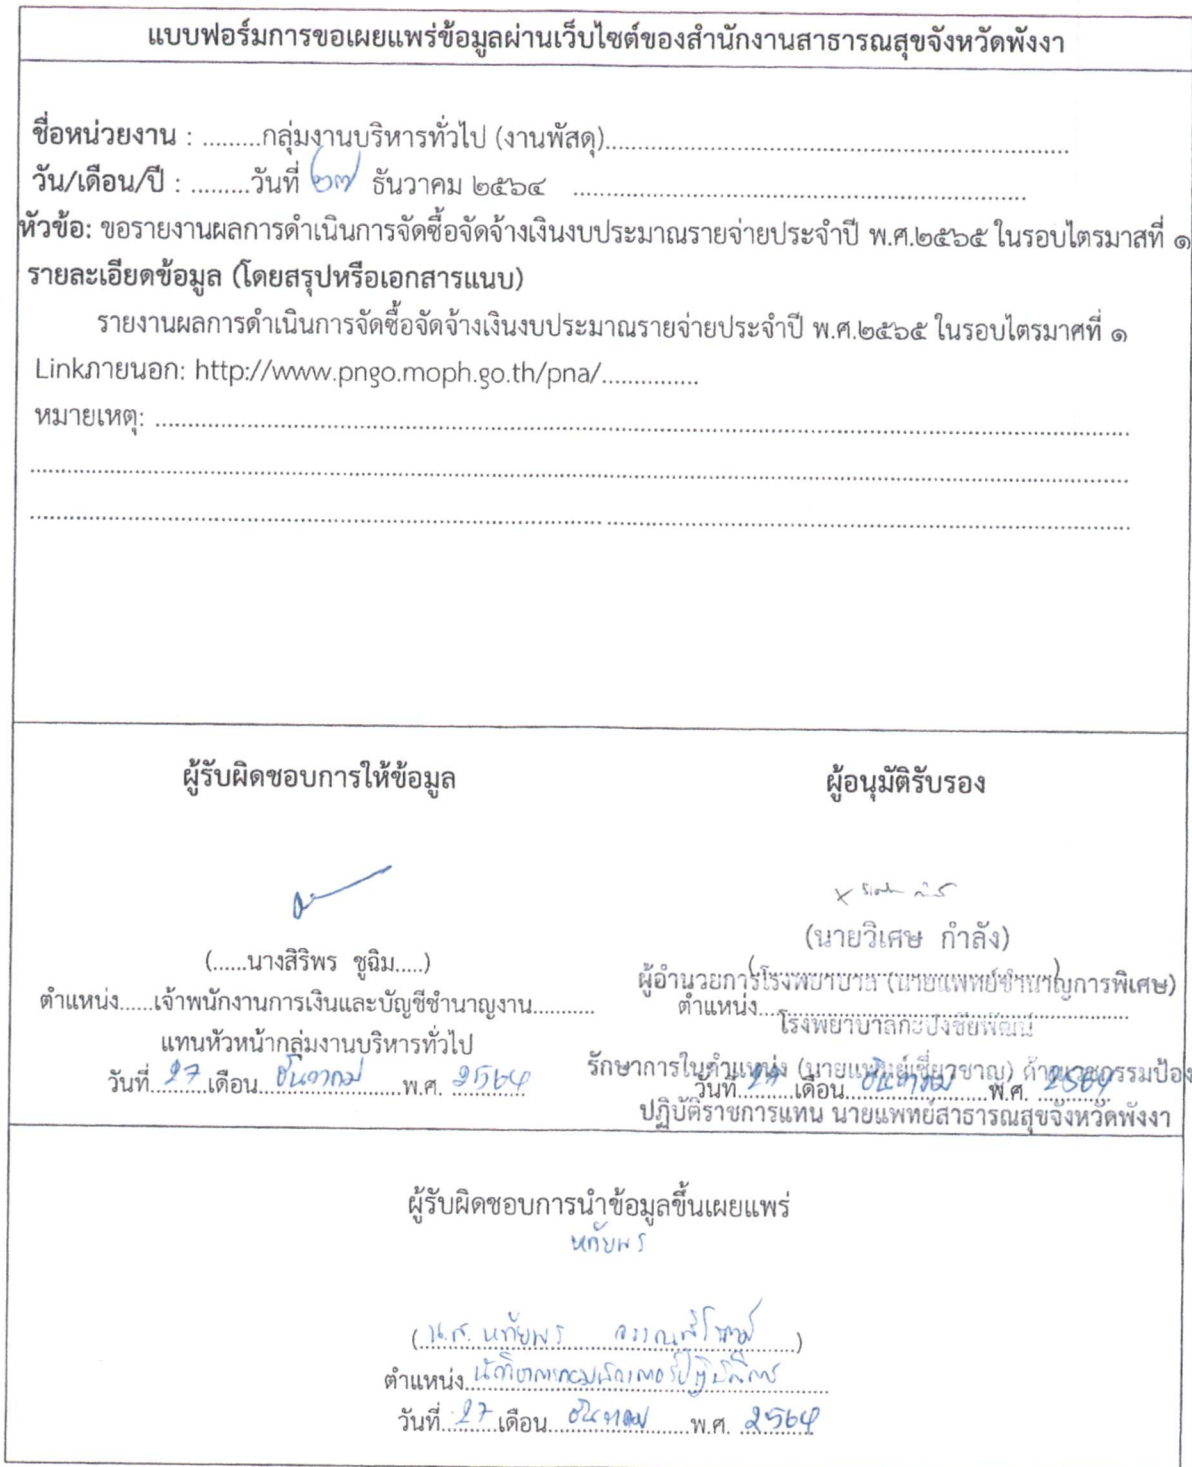 แบบฟอร์มการขอเผยแพร่ข้อมูลผ่านเว็บไซต์ของสำนักงานสาธารณสุขจังหวัดพังงา
ชื่อหน่วยงาน : .........กลุ่มงานบริหารทั่วไป (งานพัสดุ).......................................................................
วัน/เดือน/ปี : .........วันที่ ๒๗ ธันวาคม ๒๕๖๔ .....................................................................
หัวข้อ: ขอรายงานผลการดำเนินการจัดซื้อจัดจ้างเงินงบประมาณรายจ่ายประจำปี พ.ศ.๒๕๖๕ ในรอบไตรมาสที่ ๑
รายละเอียดข้อมูล (โดยสรุปหรือเอกสารแนบ)
รายงานผลการดำเนินการจัดซื้อจัดจ้างเงินงบประมาณรายจ่ายประจำปี พ.ศ.๒๕๖๕ ในรอบไตรมาศที่ ๑
Linkภายนอก: http://www.pngo.moph.go.th/pna/...............
หมายเหตุ: ....................................................................................................
ผู้รับผิดชอบการให้ข้อมูล
(......นางสิริพร ชูฉิม.....)
ตำแหน่ง......เจ้าพนักงานการเงินและบัญชีชำนาญงาน...........
แทนหัวหน้ากลุ่มงานบริหารทั่วไป
วันที่ 27 เดือน ธันวาคม พ.ศ. 2564
ผู้อนุมัติรับรอง
(นายวิเศษ กำลัง)
ผู้อำนวยการโรงพยาบาล (นายแพทย์ชำนาญการพิเศษ)
ตำแหน่ง
โรงพยาบาลกะปงชัยพัฒน์
รักษาการในตำแหน่ง (นายแพทย์เชี่ยวชาญ) ด้านเวชกรรมป้อง
วันที่ 27 เดือน ธันวาคม พ.ศ. 2564
ปฏิบัติราชการแทน นายแพทย์สาธารณสุขจังหวัดพังงา
ผู้รับผิดชอบการนำข้อมูลขึ้นเผยแพร่
หทัยพร
(น.ส. หทัยพร )
ตำแหน่ง นักวิชาการคอมพิวเตอร์ปฏิบัติการ
วันที่ 27 เดือน ธันวาคม พ.ศ. 2564